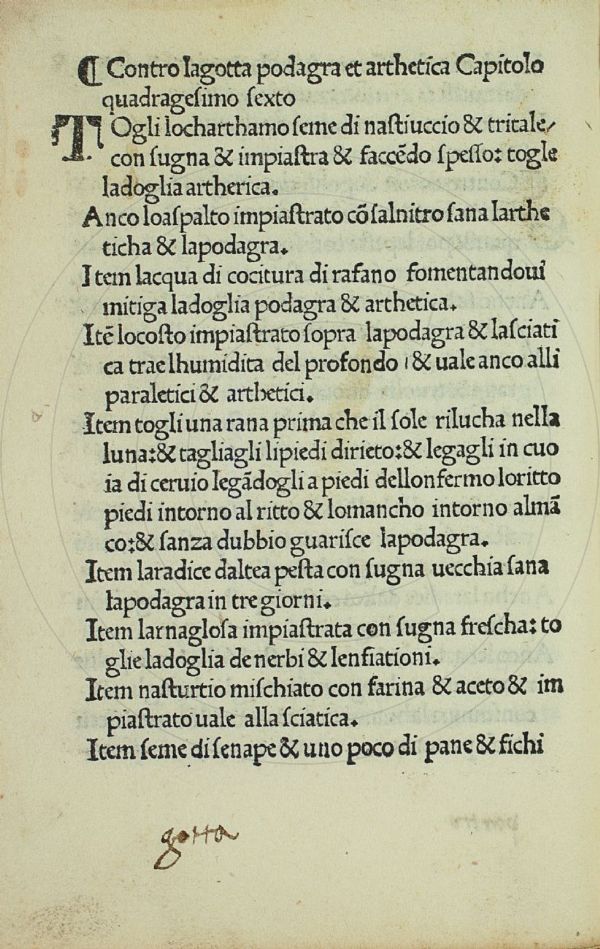 ¶ Contro lagotta podagra et arthetica Capitolo
quadrageſimo ſexto
TOgli locharthamo ſeme di naſtiuccio & tritale/
con ſugna & impiaſtra & faccēdo ſpeſſo: togle
ladoglia artherica.
Anco loaſpalto impiaſtrato cō ſalnitro ſana larthe
ticha & lapodagra.
Item lacqua di cocitura di rafano fomentandoui
mitiga ladoglia podagra & arthetica.
Itē locoſto impiaſtrato ſopra lapodagra & laſciati
ca trae lhumidita del profondo ı & uale anco alli
paraletici & arthetici.
Item togli una rana prima che il ſole rilucha nella
luna: & tagliagli lipiedi dirieto: & legagli in cuo
ia di ceruio legādogli a piedi dellonfermo loritto
piedi intorno al ritto & lomancho intorno almā
co: & ſanza dubbio guariſce lapodagra.
Item laradice daltea peſta con ſugna uecchia ſana
lapodagra in tre giorni.
Item larnagloſa impiaſtrata con ſugna freſcha: to
glie ladoglia de nerbi & lenfiationi.
Item naſturtio miſchiato con farina & aceto & im
piaſtrato uale alla ſciatica.
Item ſeme di ſenape & uno poco di pane & fichi
gotta